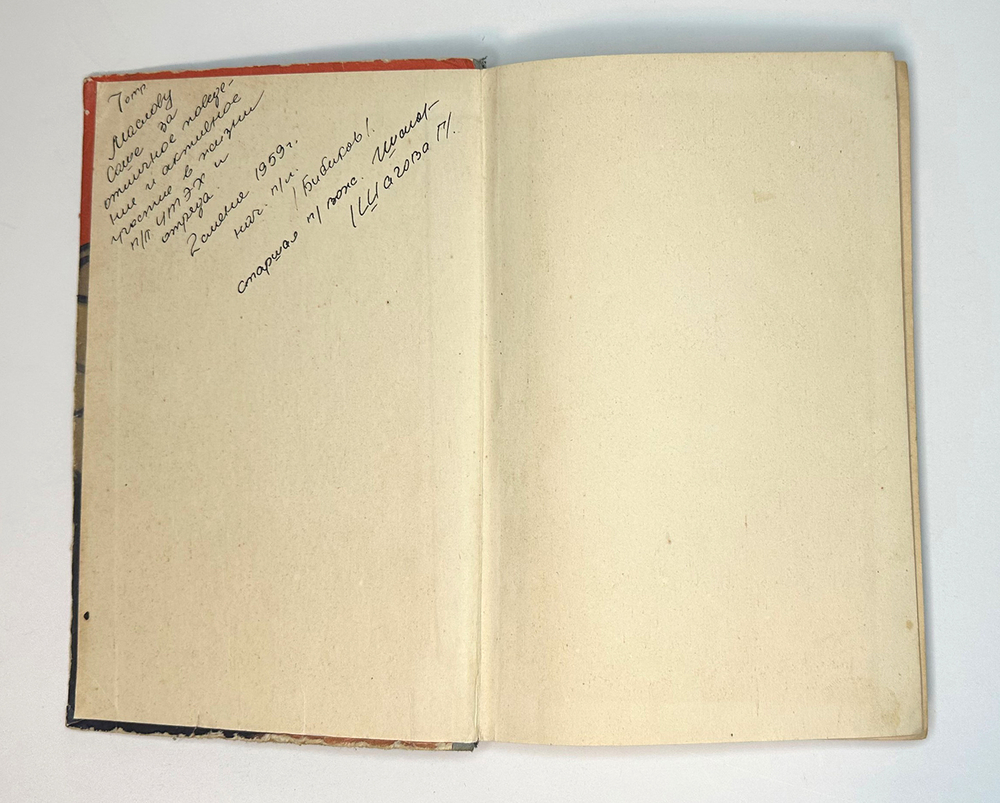 7 отр
Маслову
Саше за
отличное поведе-
ние и активное
участие в жизни
п/л. УТЭХ и
отряда.
2 смена 1959 г.
нач. п/л.
/Бибиков/.
старшая п/вож.
/Шагова П/.